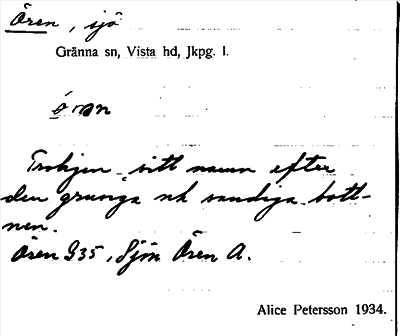 Ören, sjö
Gränna sn, Vista hd, Jkpg. l.
Troligen sitt namn efter
den grunga ok sandiga bott-
nen.
Ören G35, Sjön Ören A.
Alice Petersson 1934.